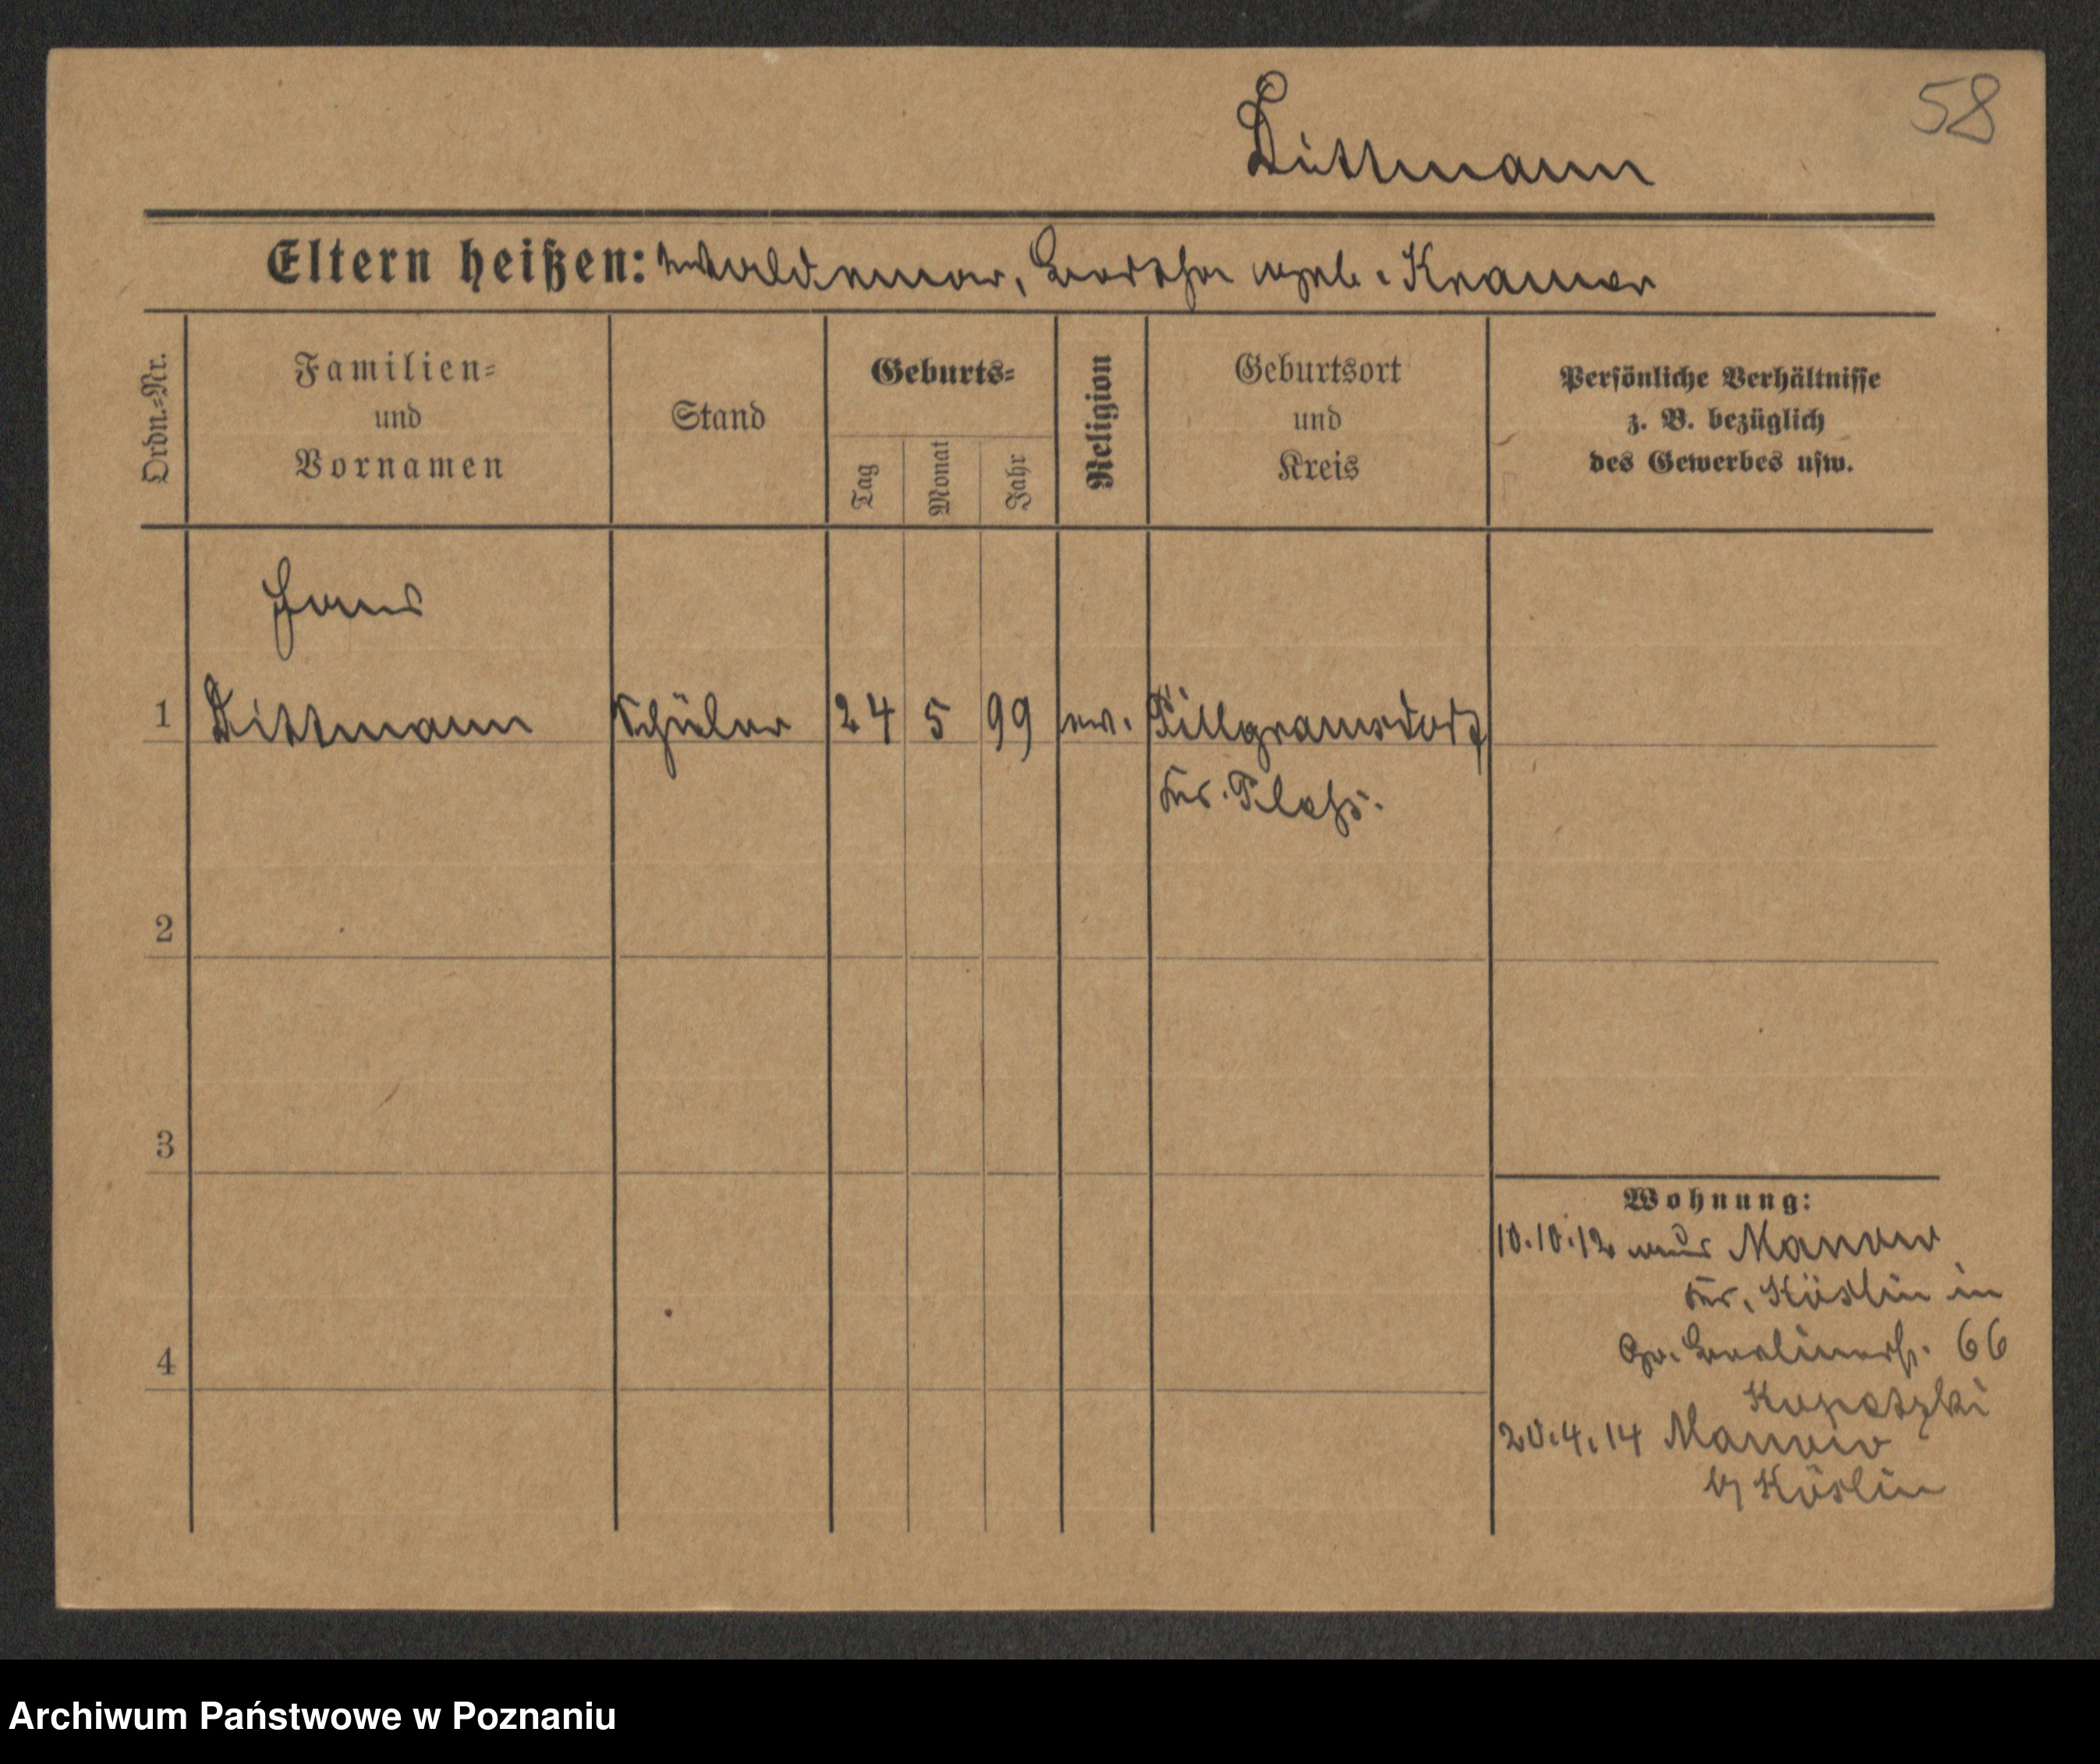 58
Dittmann
Eltern heißen: Waldemar, Bertha geb. Kramer
Ordn.-Nr.
Familien-
und
Vornamen
Stand
Geburts-
Tag
Monat
Jahr
Religion
Geburtsort
und
Kreis
Persönliche Verhältnisse
z. B. bezüglich
des Gewerbes usw.
Hans
1 Dittmann Schüler 24 5 99 ev. Pillgramsdorf
Kr. Pleß.
2
3
4
Wohnung:
10.10.12 aus Manow
Kr. Köslin in
Gr. Berlinerst. 66
Kopatzki
20.4.14 Manow
b/ Köslin
Archiwum Państwowe w Poznaniu